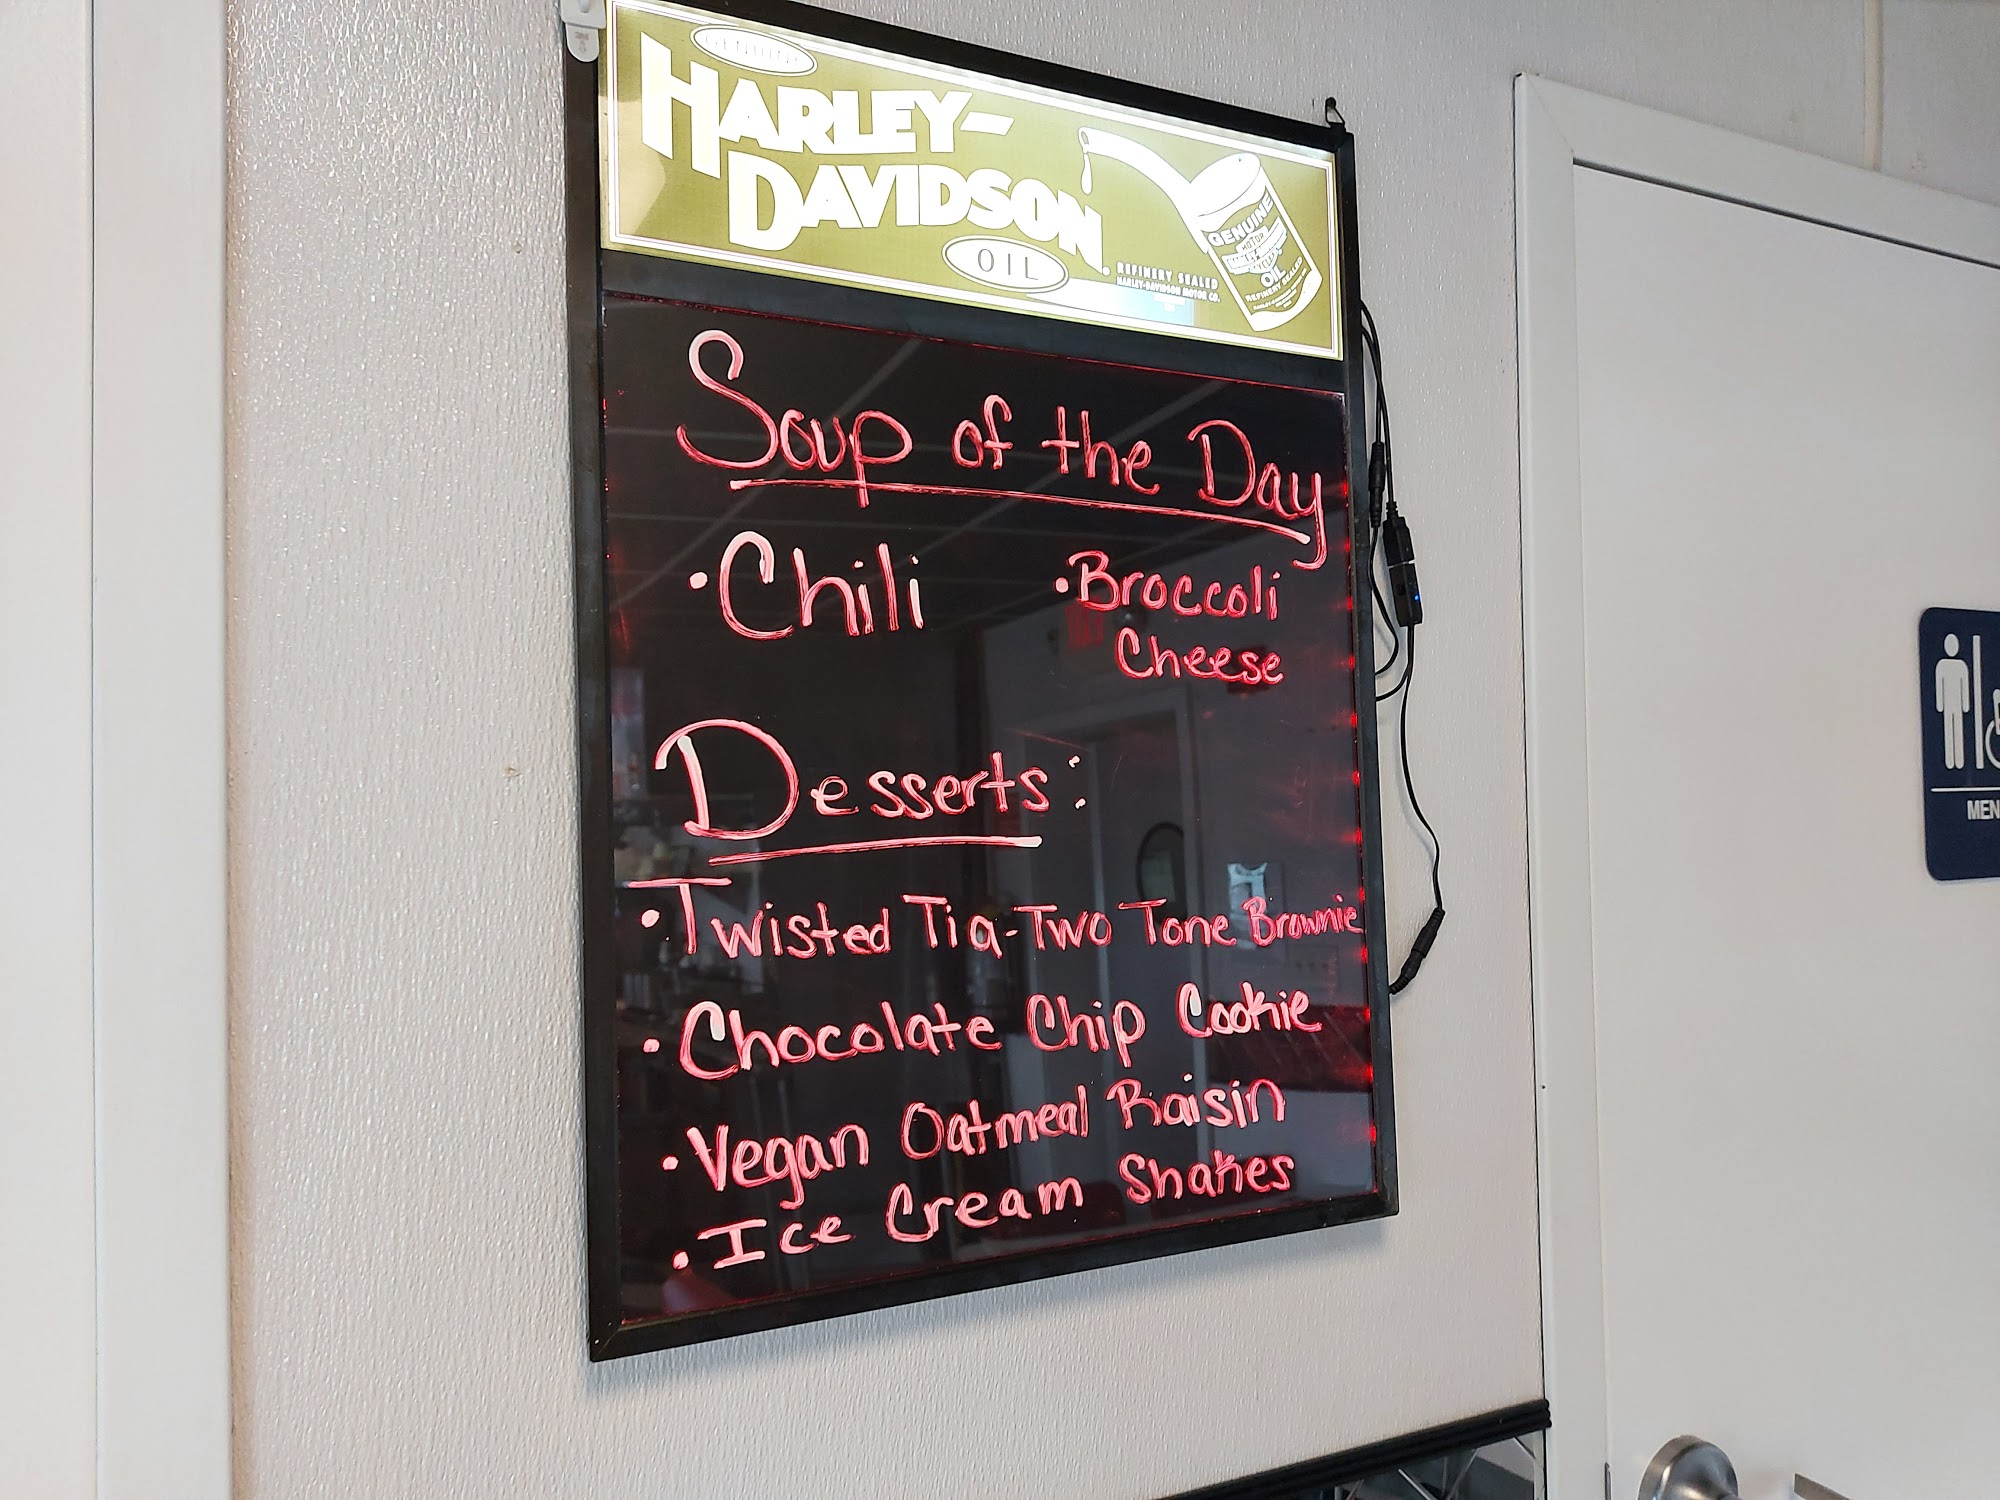 GENUINE
HARLEY-
DAVIDSON
OIL
REFINERY SEALED
HARLEY-DAVIDSON MOTOR CO.
GENUINE
MOTOR
OIL
REFINERY SEALED
Soup of the Day
• Chili
• Broccoli
Cheese
Desserts:
• Twisted Tia-Two Tone Brownie
• Chocolate Chip Cookie
• Vegan Oatmeal Raisin
• Ice Cream Shakes
MEN